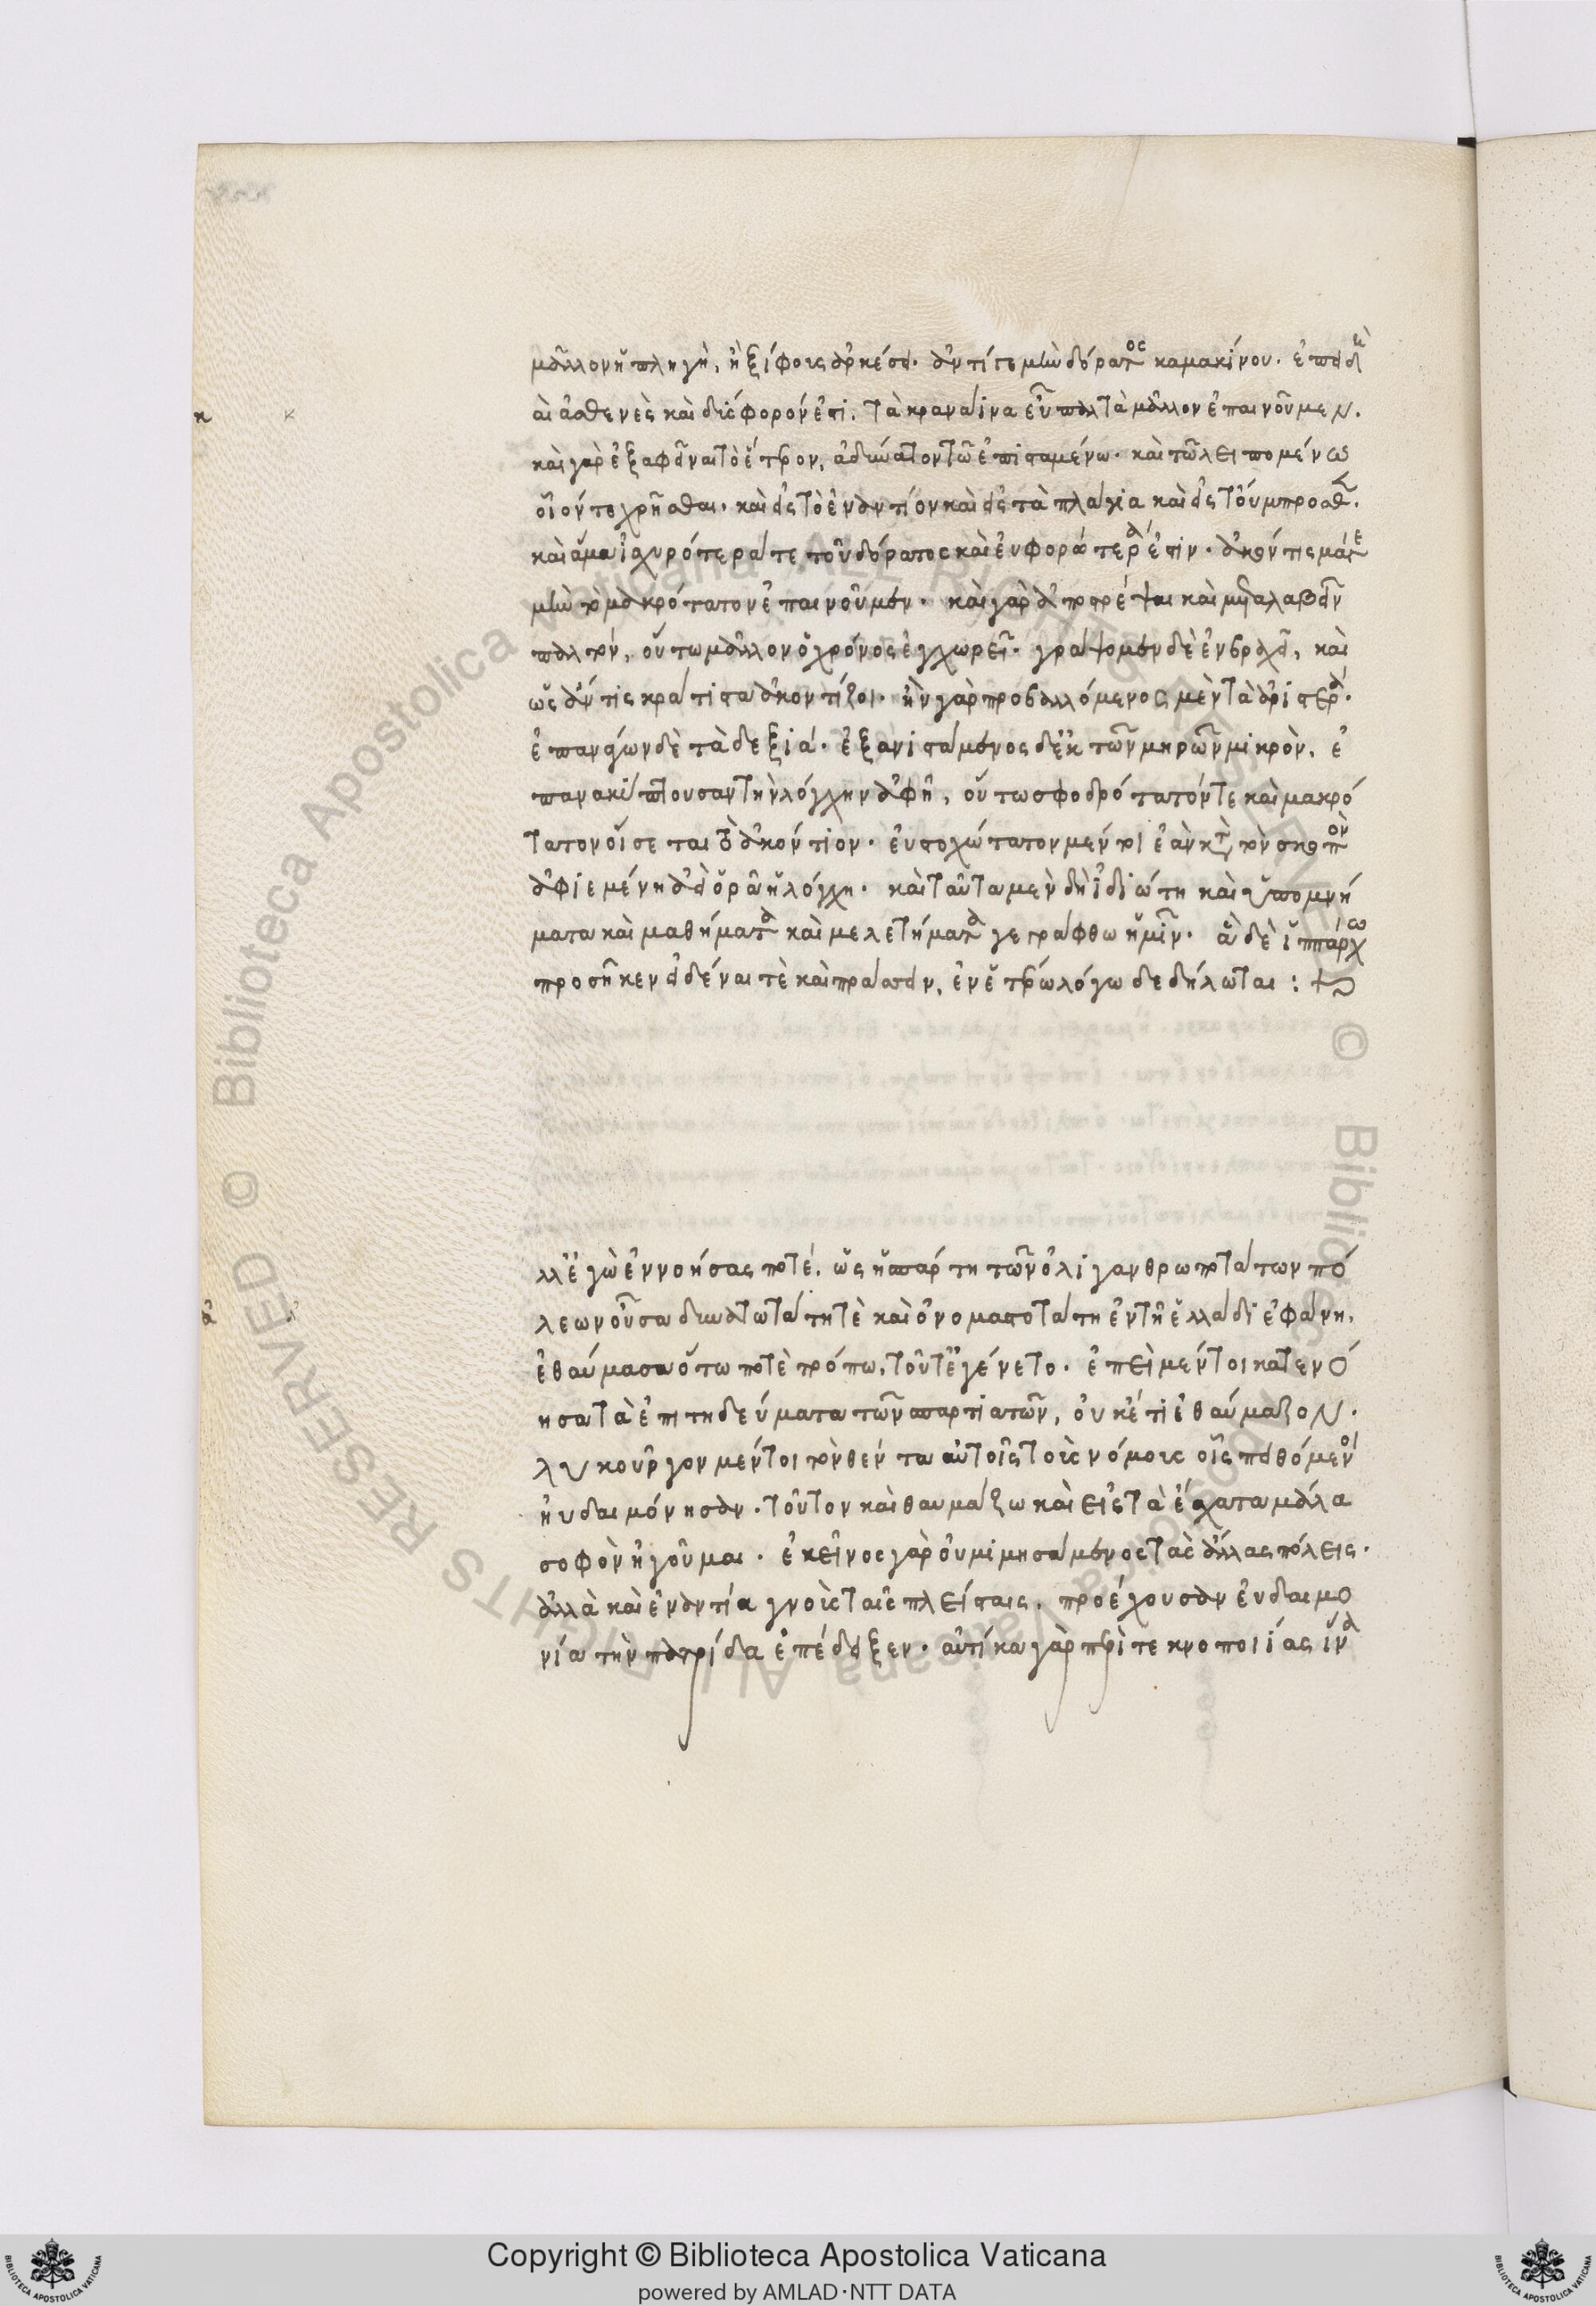 μᾶλλον ἢ πληγὴ, ἢ ξίφους ἀρκέσει· ἀντί γε μὴν δόρατος καμακίνου· ἐπειδὴ
αὶ ἀσθενὲς καὶ διάφορόν ἐστι, τὰ κραναΐνα δύο παλτὰ μᾶλλον ἐπαινοῦμεν.
καὶ γὰρ ἐξαφεῖναι τὸ ἕτερον, δυνατὸν τῶ ἐπισταμένω· καὶ τῶ λειπομένω
οἷόν τε χρῆσθαι· καὶ εἰς τὸ ἐναντίον καὶ εἰς τὰ πλάγια καὶ εἰς τοὔμπροσθεν.
καὶ ἅμα ἰσχυρότερά τε τοῦ δόρατος καὶ ἐυφορώτερά ἐστιν· ἀκόντισμά γε
μὴν τὸ μακρότατον ἐπαινοῦμεν· καὶ γὰρ ἀποστρέψαι καὶ μεταλαβεῖν
παλτὸν, οὕτω μᾶλλον ὁ χρόνος ἐγχωρεῖ· γράψομεν δὲ ἐν βραχεῖ, καὶ
ὡς ἄν τις κράτιστα ἀκοντίζοι· ἢν γὰρ προβαλλόμενος μὲν τὰ ἀριστερά·
ἐπανάγων δὲ τὰ δεξιά· ἐξανιστάμενος δ' ἐκ τῶν μηρῶν μικρὸν, ἐ
πανακύπτουσαν τὴν λόγχην ἀφῆ, οὕτω σφοδρότατόν τε καὶ μακρό
τατον οἴσεται τὸ ἀκόντιον· ἐυστοχώτατον μέντοι ἐὰν κατὰ τὸν σκοπὸν
ἀφιεμένη ἀεὶ ὁρᾶ ἡ λόγχη· καὶ ταῦτα μὲν δὴ ἰδιώτη καὶ ὑπομνή
ματα καὶ μαθήματα καὶ μελετήματα γεγράφθω ἡμῖν· ἃ δὲ ἱππάρχω
προσῆκεν εἰδέναι τὲ καὶ πράττειν, ἐν ἑτέρω λόγω δεδήλωται :
λλ' ἐγὼ ἐννοήσας ποτὲ, ὡς ἡ σπάρτη τῶν ὀλιγανθρωποτάτων πό
λεων οὖσα δυνατωτάτη τὲ καὶ ὀνομαστοτάτη ἐν τῆ ἑλλάδι ἐφάνη,
ἐθαύμασα ὅτω ποτὲ τρόπω, τοῦτ' ἐγένετο· ἐπεὶ μέντοι κατενό
ησα τὰ ἐπιτηδεύματα τῶν σπαρτιατῶν, ὀυκέτι ἐθαύμαζον.
λυκοῦργον μέντοι τὸν θέντα αὐτοῖς τοὺς νόμους οἷς πειθόμενοι
ἠυδαιμόνησαν· τοῦτον καὶ θαυμάζω καὶ εἰς τὰ ἔσχατα μάλα
σοφὸν ἡγοῦμαι· ἐκεῖνος γὰρ ὀυ μιμησάμενος τὰς ἄλλας πόλεις.
ἀλλὰ καὶ ἐναντία γνοὺς ταῖς πλείσταις, προέχουσαν ἐυδαιμο
νία τὴν πατρίδα ἐπέδειξεν· αὐτίκα γὰρ περὶ τεκνοποιίας ἵνα